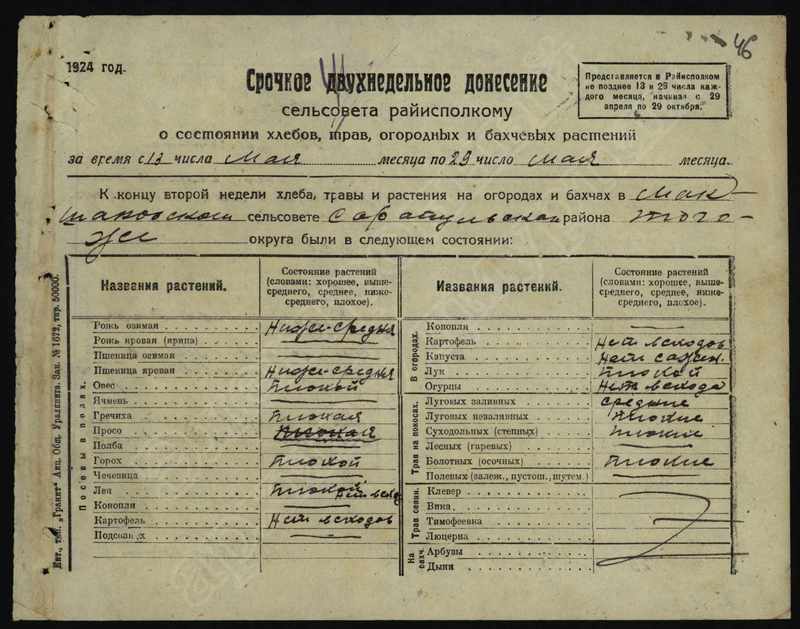 46
1924 год.
Срочное двухнедельное донесение
сельсовета райисполкому
о состоянии хлебов, трав, огородных и бахчевых растений
Представляется в Райисполком
не позднее 13 и 29 числа каж-
дого месяца, начиная с 29
апреля по 29 октября.
за время с 13 числа Мая месяца по 29 число мая месяца.
К концу второй недели хлеба, травы и растения на огородах и бахчах в Мак-
шаковском сельсовете Сарапульского района того-
же округа были в следующем состоянии:
Названия растений.
Состояние растений
(словами: хорошее, выше-
среднего, среднее, ниже-
среднего, плохое).
Посевы в полях.
Рожь озимая Ниже-средня
Рожь яровая (ярица)
Пшеница озимая
Пшеница яровая Ниже-средня
Овес Плохой
Ячмень
Гречиха Плохая
Просо Плохая
Полба
Горох Плохой
Чечевица
Лен Плохой
Конопля
Картофель Нет всходов
Подсолнух
Названия растений.
Состояние растений
(словами: хорошее, выше-
среднего, среднее, ниже-
среднего, плохое).
В огородах.
Конопля
Картофель Нет всходов
Капуста Нет сажен.
Лук Плохой
Огурцы Нет всхода
Трав на покосах.
Луговых заливных средние
Луговых незаливных Плохие
Суходольных (степных) Плохие
Лесных (гаревых)
Болотных (осочных) Плохие
Полевых (залеж., пустош., шутем.)
Трав сеян.
Клевер
Вика
Тимофеевка
Люцерна
На бахч.
Арбузы
Дыни
Инт., тип. „Гранит" Акц. Общ. Уралкнига. Зак. № 1672, тир. 50000.